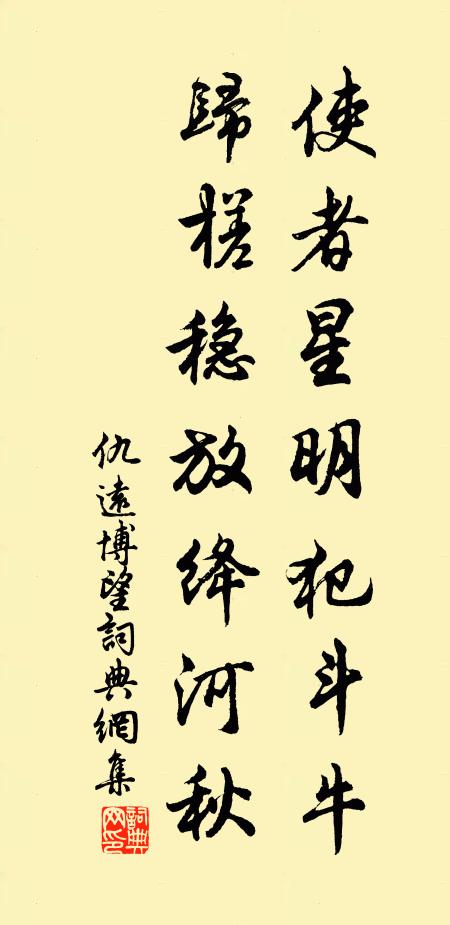 使者星明犯斗牛
歸槎稳放绛河秋
仇遠博望詞典網集
詞典网印